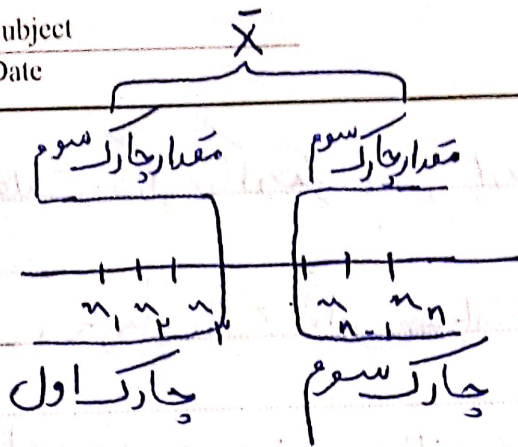 ubject
Date
X̄
مقدار چارک سوم مقدار چارک سوم
x₁ x₂ x₃ xₙ₋₁ xₙ
چارک اول چارک سوم